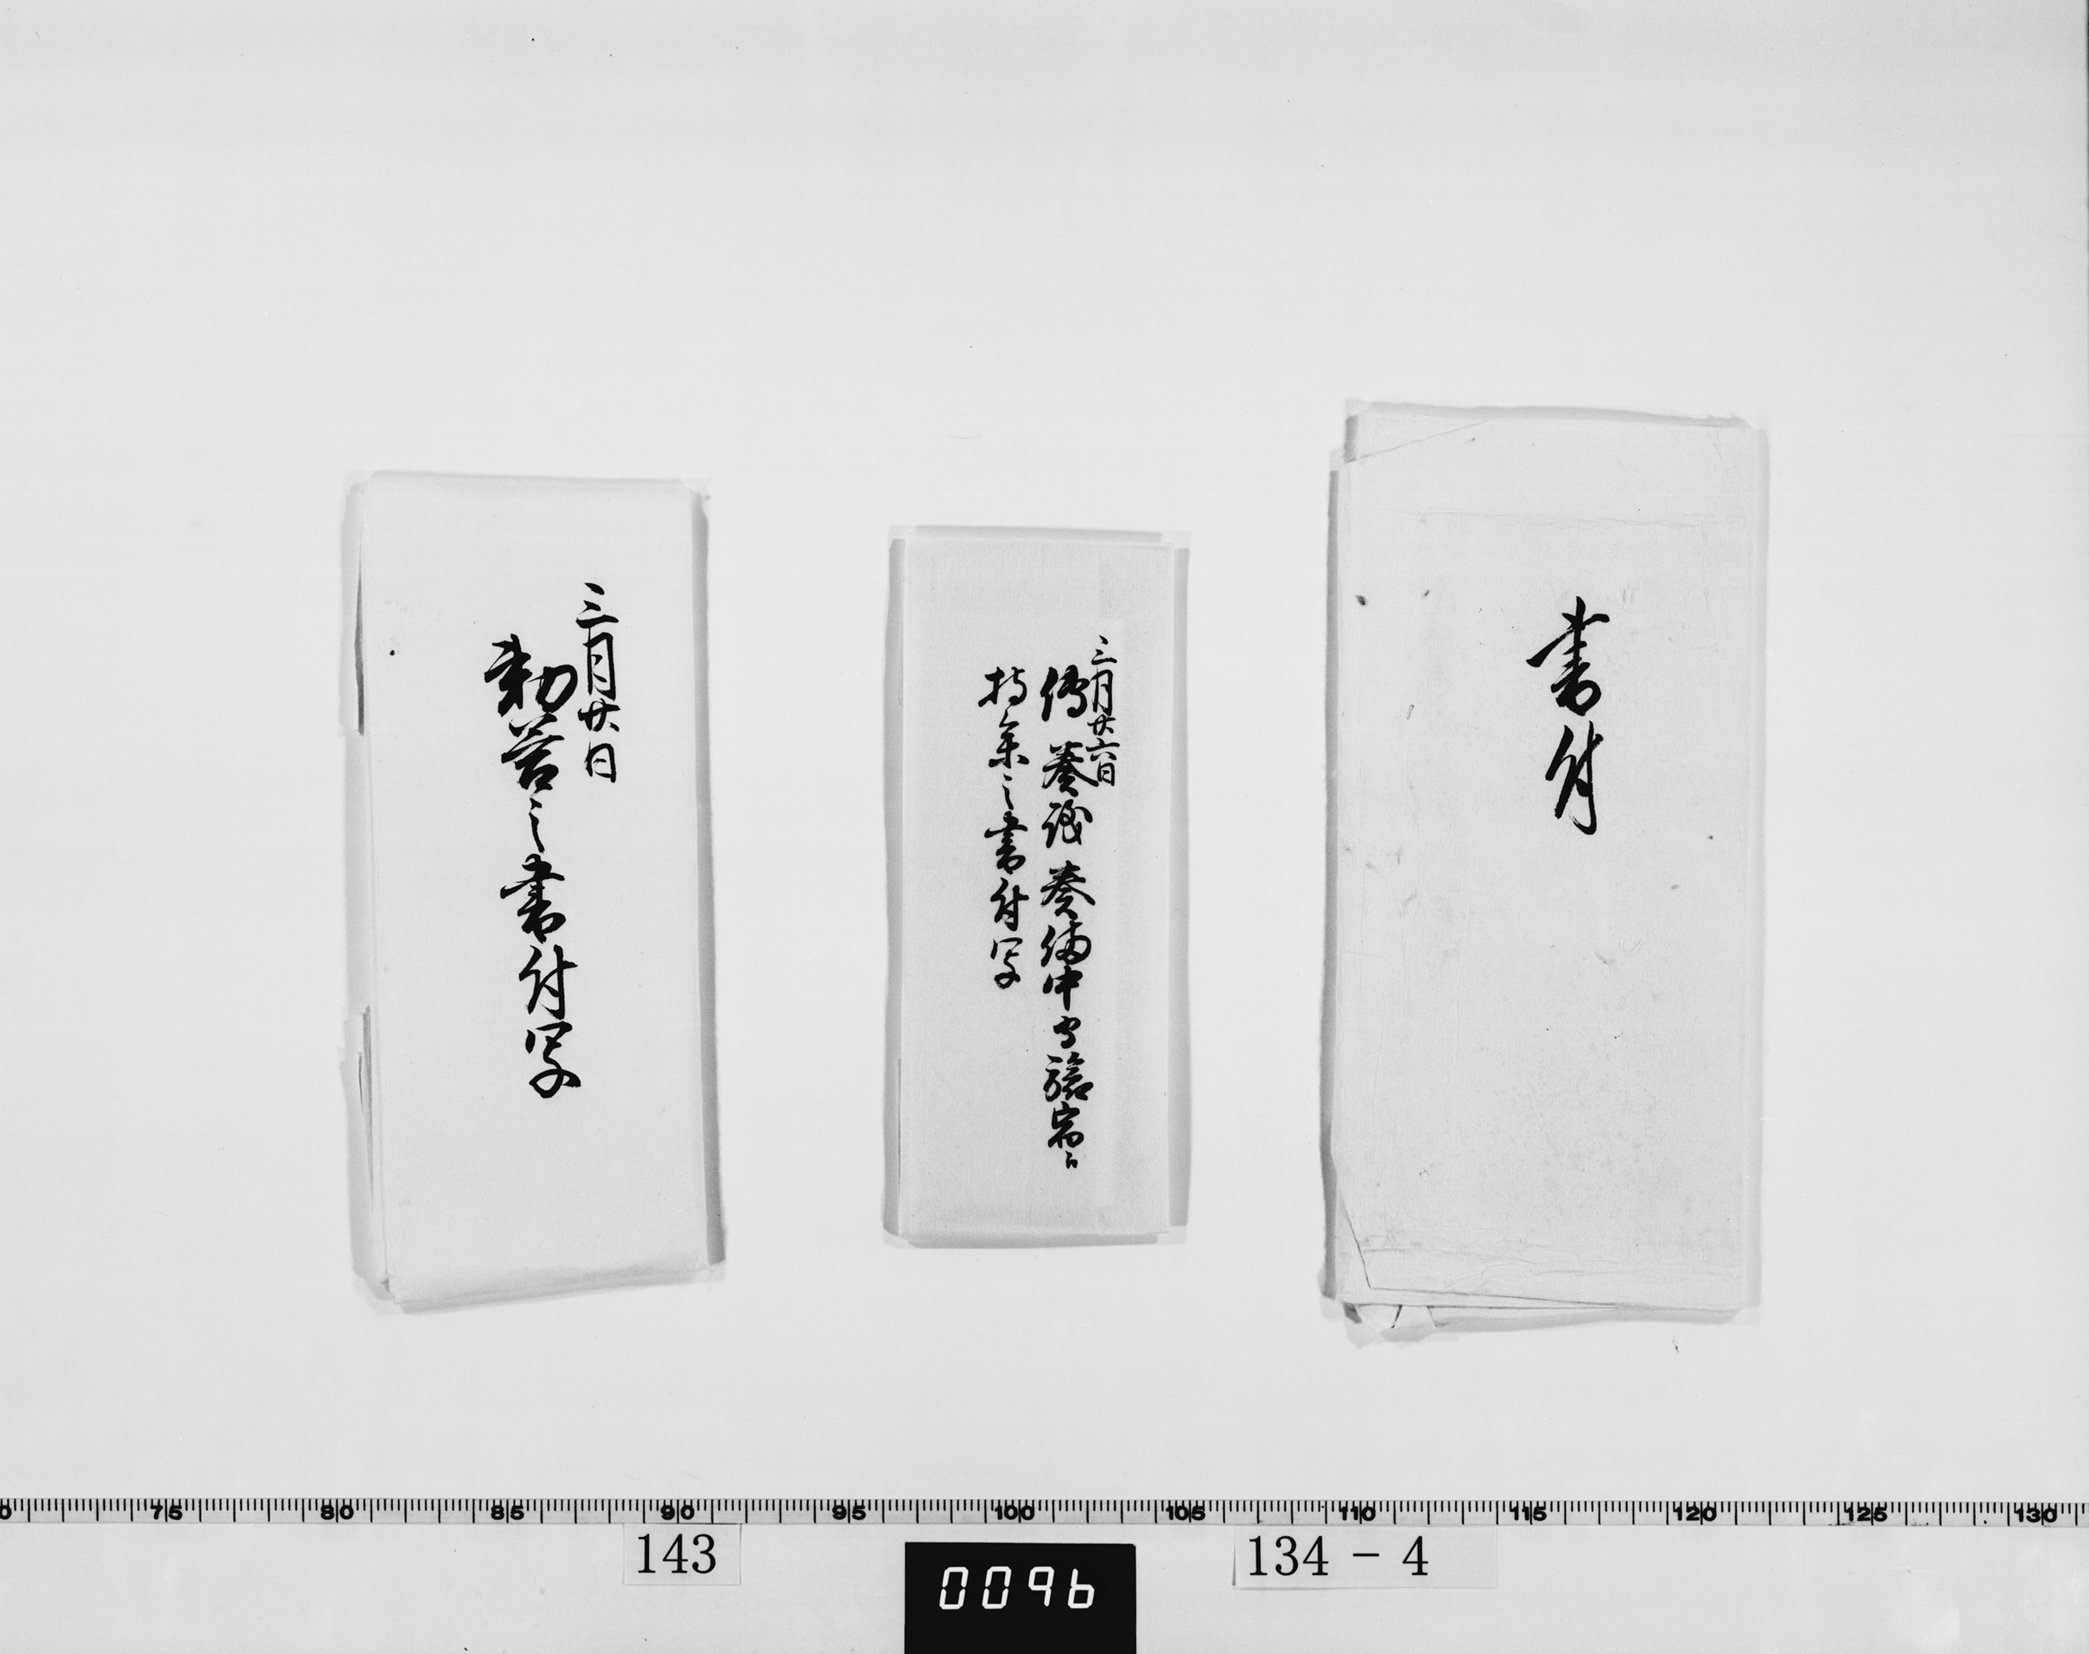 書付
三月廿六日
傳 奏議 奏備中守旅宿
持参之書付写
三月廿日
勅答之書付写
75 80 85 90 95 100 105 110 115 120 125 130
143
0096
134－4